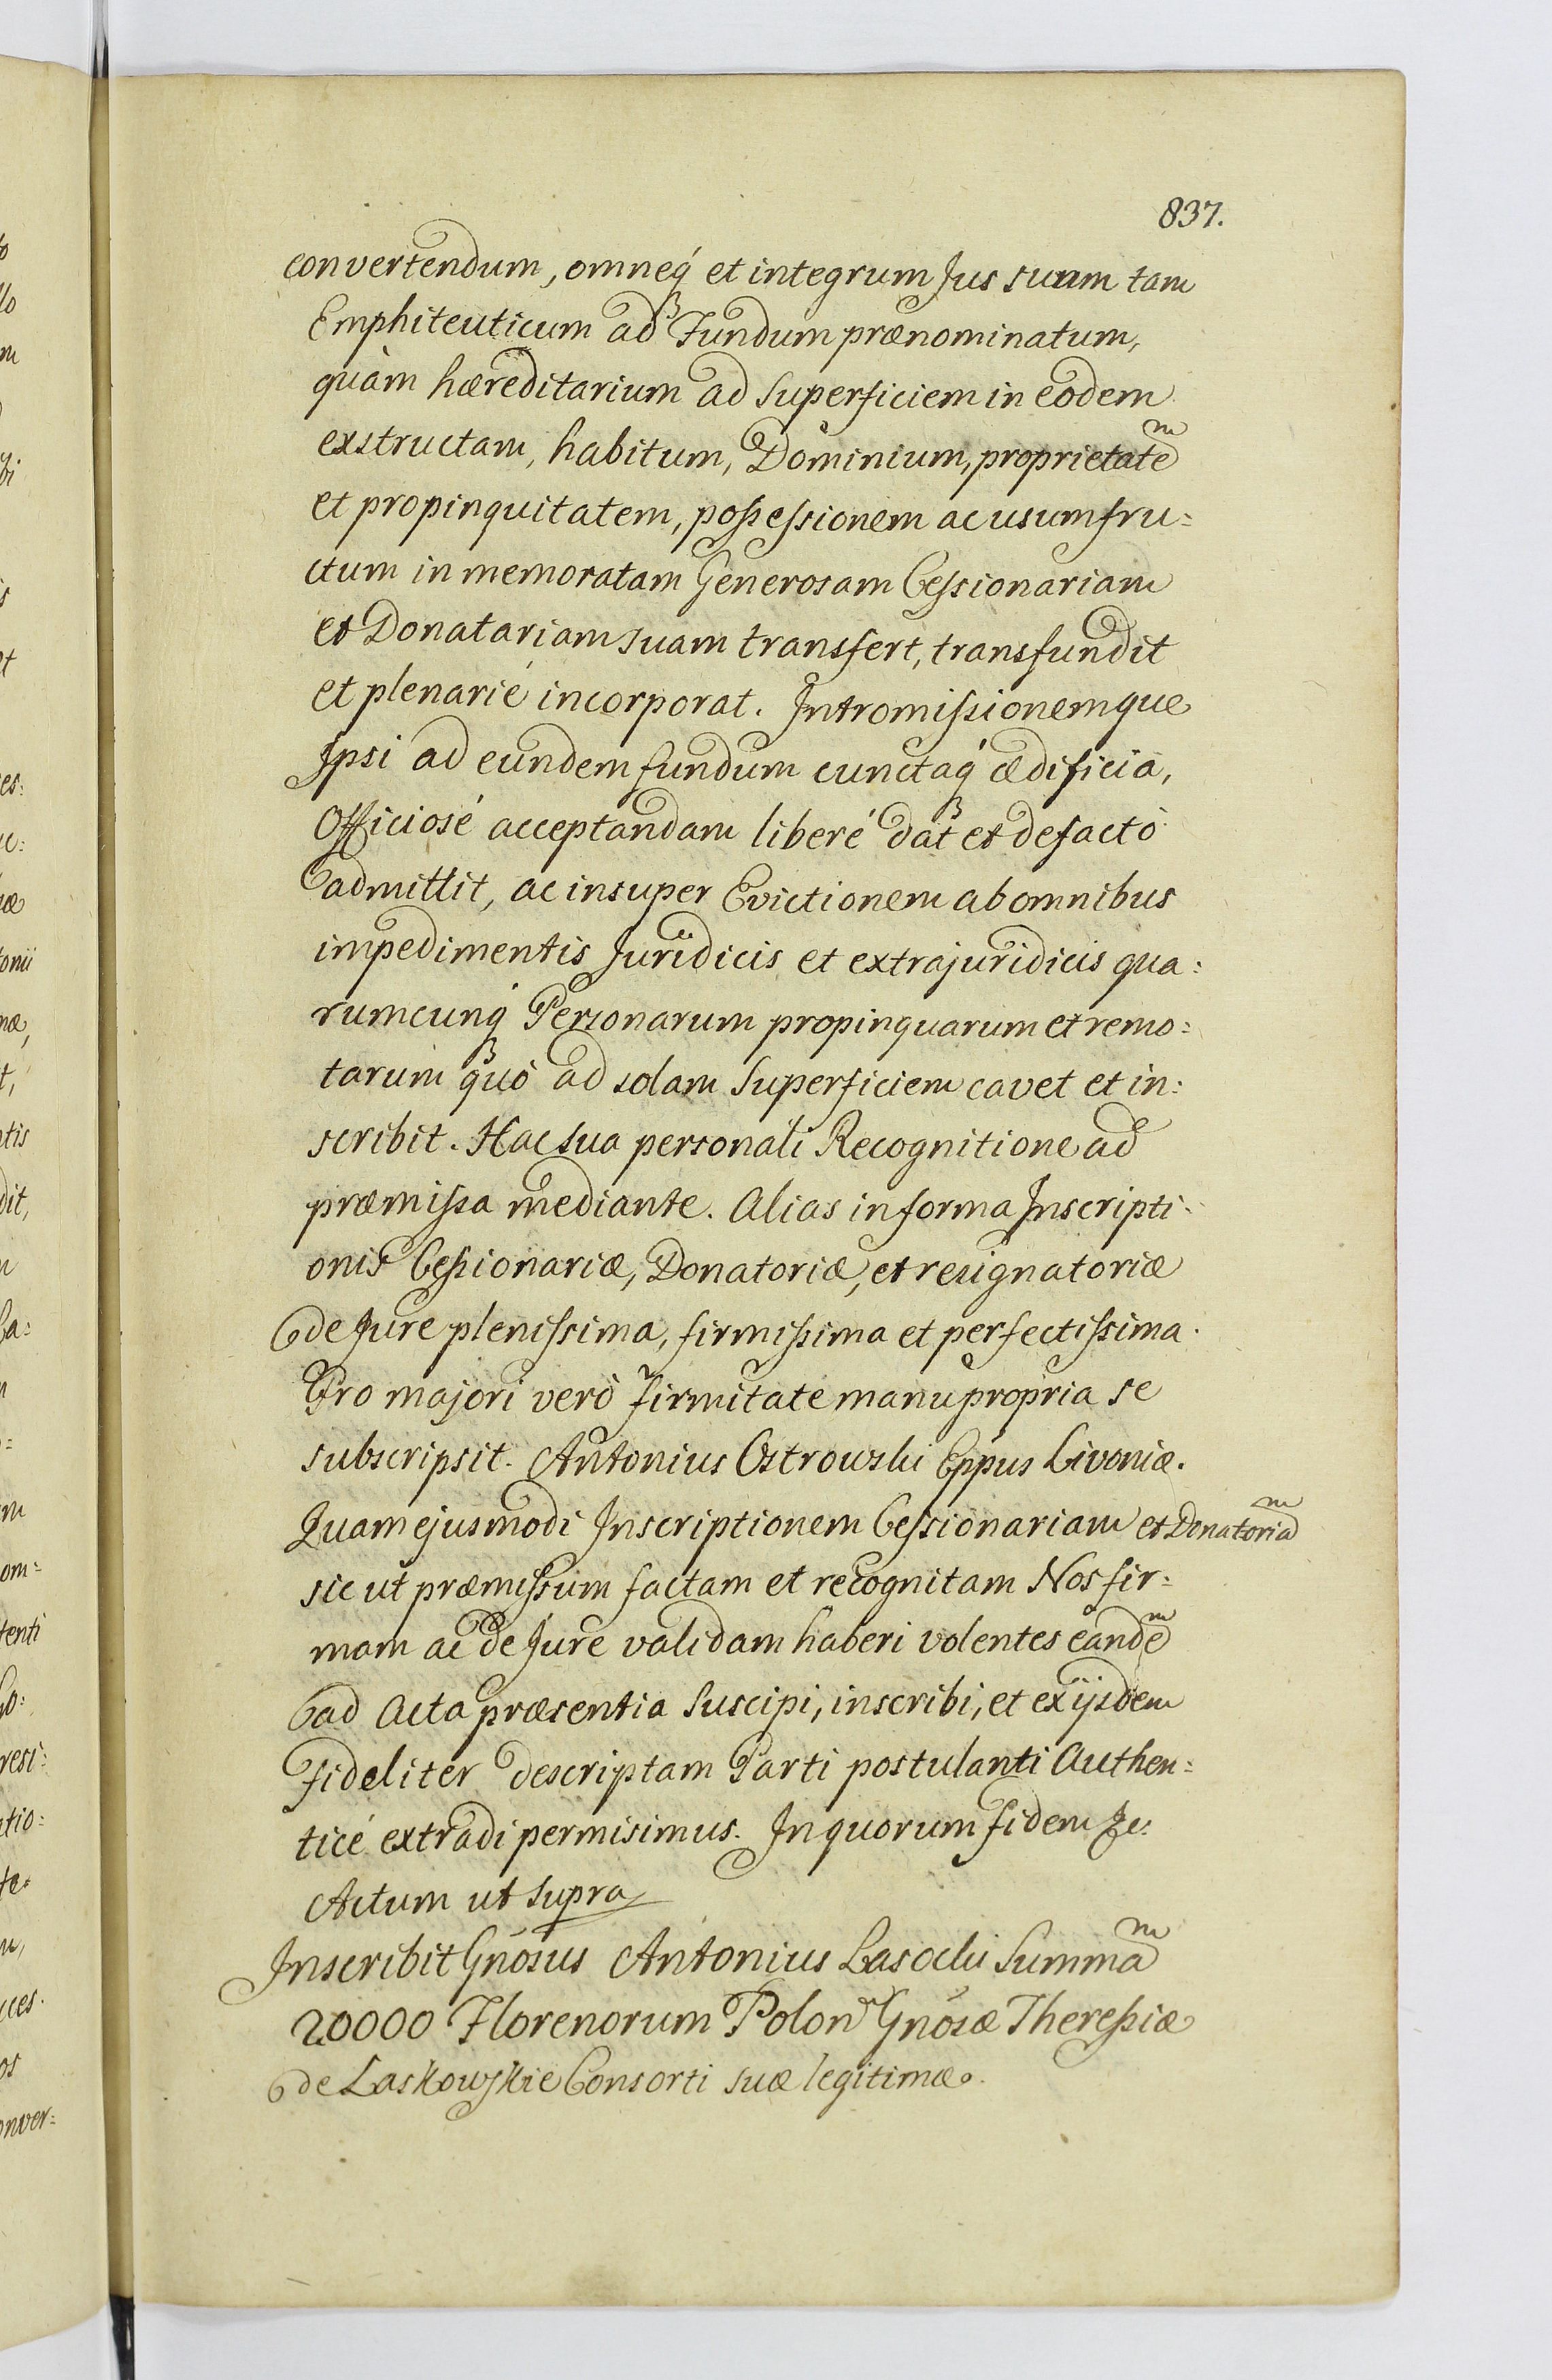 837.
convertendum, omneq́ꝫ et integrum Jus suum tam
Emphiteuticum ad Fundum prænominatum,
quàm hæreditarium ad superficiem in eodem
exstructam, habitum, Dominium, proprietate͂m
et propinquitatem, possessionem ac usumfru=
ctum in memoratam Generosam Cessionariam
et Donatariam suam transfert, transfundit
et plenarié incorporat. Intromissionemque
Ipsi ad eundem fundum cunctaq́ꝫ ædificia,
Officiosé acceptandam liberé dat et defacto
admittit, ac insuper Evictionem ab omnibus
impedimentis Juridicis et extrajuridicis qua=
rumcunq́ꝫ Personarum propinquarum et remo=
tarum quò ad solam superficiem cavet et in=
scribit. Hac sua personali Recognitione ad
præmissa mediante. Alias in forma Inscripti=
onis Cessionariæ, Donatoriæ, et resignatoriæ
de Jure plenissima, firmissima et perfectissima.
Pro majori verò firmitate manu propria se
subscripsit. Antonius Ostrowski Eppus Livoniæ.
Quam ejusmodi Inscriptionem Cessionariam et Donatoriam
sic ut præmissum factam et recognitam Nos fir=
mam ac de Jure validam haberi volentes eandem
ad Acta præsentia suscipi, inscribi, et ex ijsdem
fideliter descriptam Parti postulanti Authen=
ticé extradi permisimus. In quorum fidem &c:
Actum ut supra
Inscribit Gnosus Antonius Lasocki Summam
20000 Florenorum Polon Gnosæ Theressiæ
de Laskowskie Consorti suæ legitimæ.